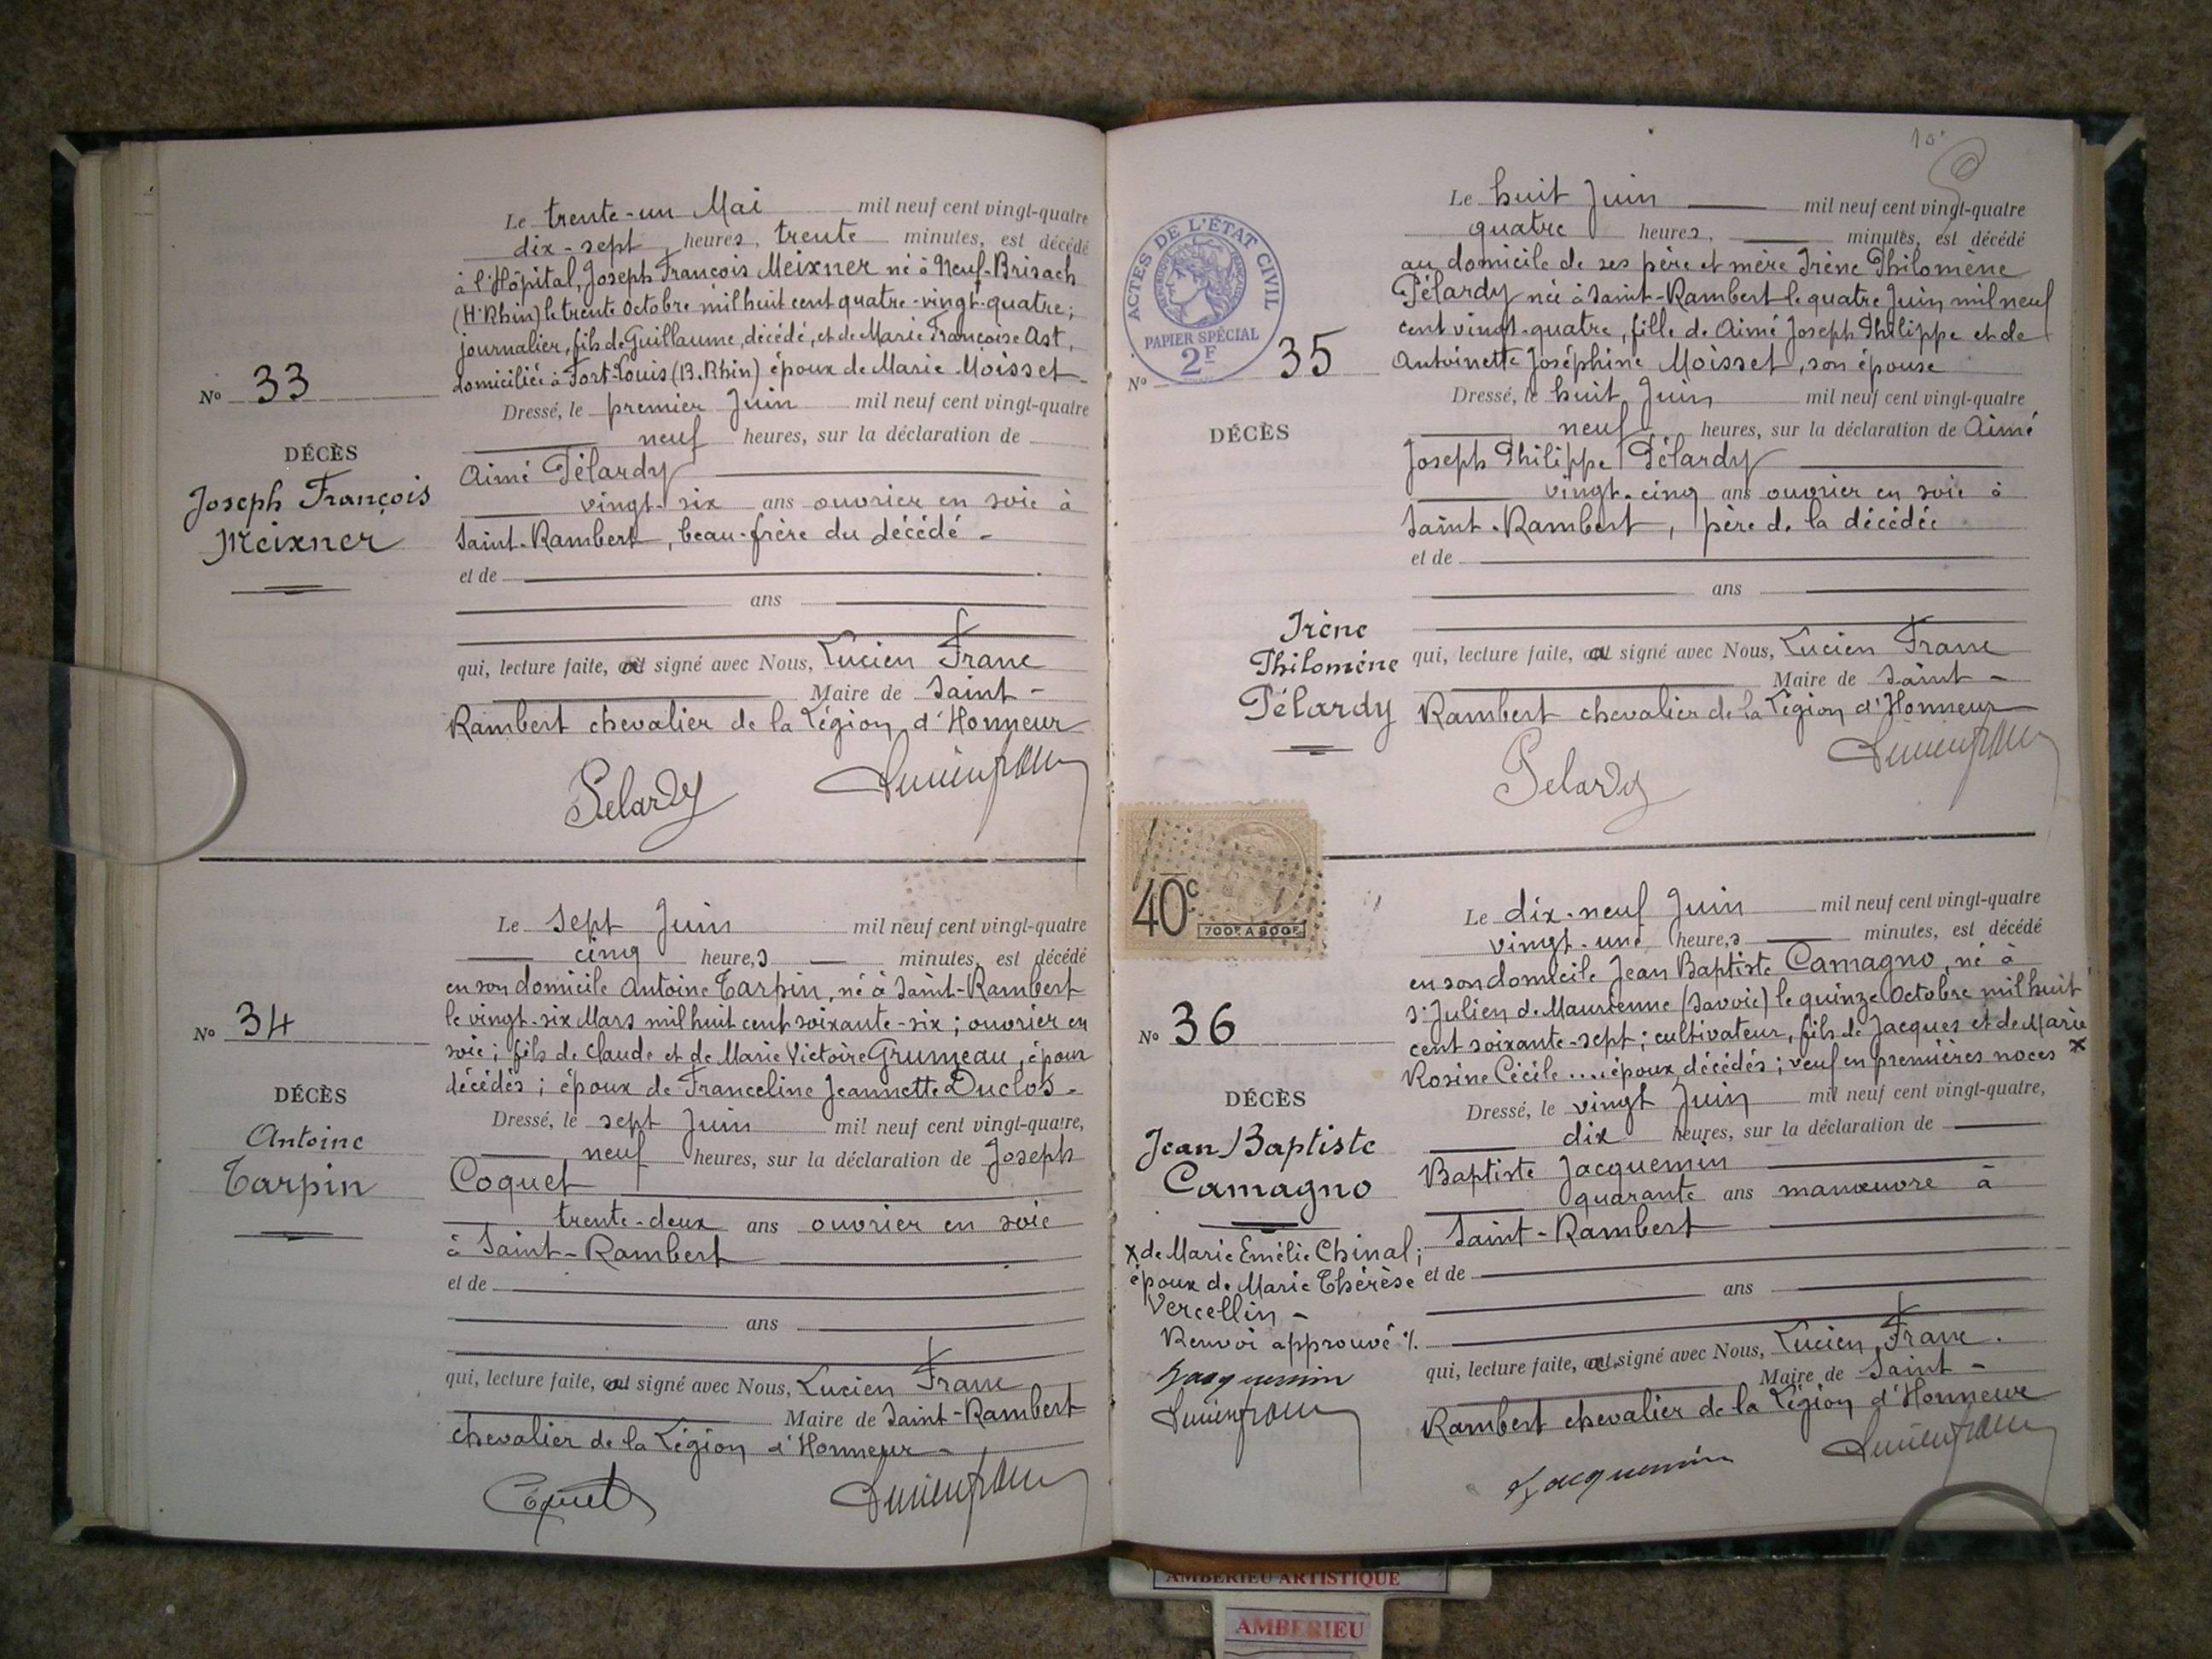 Le trente-un Mai mil neuf cent vingt-quatre
dix-sept heures, trente minutes, est décédé
à l'Hôpital, Joseph François Meixner né à Neuf-Brisach
(Ht Rhin) le trente Octobre mil huit cent quatre-vingt-quatre;
journalier, fils de Guillaume, décédé, et de Marie Françoise Ast,
domiciliée à Fort-Louis (B. Rhin) époux de Marie Moisset
No 33
Dressé, le premier Juin mil neuf cent vingt-quatre
neuf heures, sur la déclaration de
DÉCÈS
Joseph François
Meixner
Aimé Pélardy
vingt-six ans ouvrier en soie à
Saint-Rambert, beau-frère du décédé -
et de
ans
qui, lecture faite, a signé avec Nous, Lucien Franc
Maire de Saint-
Rambert chevalier de la Légion d'Honneur
Pelardy
Le sept Juin mil neuf cent vingt-quatre
cinq heures minutes, est décédé
en son domicile Antoine Tarpin, né à Saint-Rambert
le vingt-six Mars mil huit cent soixante-six; ouvrier en
soie; fils de Claude et de Marie Victoire Grumeau, époux
décédés; époux de Franceline Jeannette Duclos -
No 34
DÉCÈS
Antoine
Tarpin
Dressé, le sept Juin mil neuf cent vingt-quatre,
neuf heures, sur la déclaration de Joseph
Coquet
trente-deux ans ouvrier en soie
à Saint-Rambert
et de
ans
qui, lecture faite, a signé avec Nous, Lucien Franc
Maire de Saint-Rambert
chevalier de la Légion d'Honneur -
Coquet
ACTES DE L'ÉTAT CIVIL
RÉPUBLIQUE FRANÇAISE
PAPIER SPÉCIAL
2F
Le huit Juin mil neuf cent vingt-quatre
quatre heures, minutes, est décédé
au domicile de ses père et mère Irène Philomène
Pélardy née à Saint-Rambert le quatre Juin mil neuf
cent vingt-quatre, fille de Aimé Joseph Philippe et de
Antoinette Joséphine Moisset, son épouse
No 35
DÉCÈS
Irène
Philomène
Pélardy
Dressé, le huit Juin mil neuf cent vingt-quatre
neuf heures, sur la déclaration de Aimé
Joseph Philippe Pélardy
vingt-cinq ans ouvrier en soie à
Saint-Rambert, père de la décédée
et de
ans
qui, lecture faite, a signé avec Nous, Lucien Franc
Maire de Saint-
Rambert chevalier de la Légion d'Honneur
Pelardy
40c
700F A 800F
Le dix-neuf Juin mil neuf cent vingt-quatre
vingt-une heures minutes, est décédé
en son domicile Jean Baptiste Camagno, né à
St Julien de Maurienne (Savoie) le quinze Octobre mil huit
cent soixante-sept; cultivateur, fils de Jacques et de Marie
Rosine Cécile .... époux décédés; veuf en premières noces x
No 36
DÉCÈS
Jean Baptiste
Camagno
x de Marie Emélie Chinal;
époux de Marie Thérèse
Vercellin -
Renvoi approuvé %.
Jacquemin
Dressé, le vingt Juin mil neuf cent vingt-quatre,
dix heures, sur la déclaration de
Baptiste Jacquemin
quarante ans manœuvre à
Saint-Rambert
et de
ans
qui, lecture faite, a signé avec Nous, Lucien Franc.
Maire de Saint-
Rambert chevalier de la Légion d'Honneur
Jacquemin
AMBERIEU ARTISTIQUE
AMBERIEU